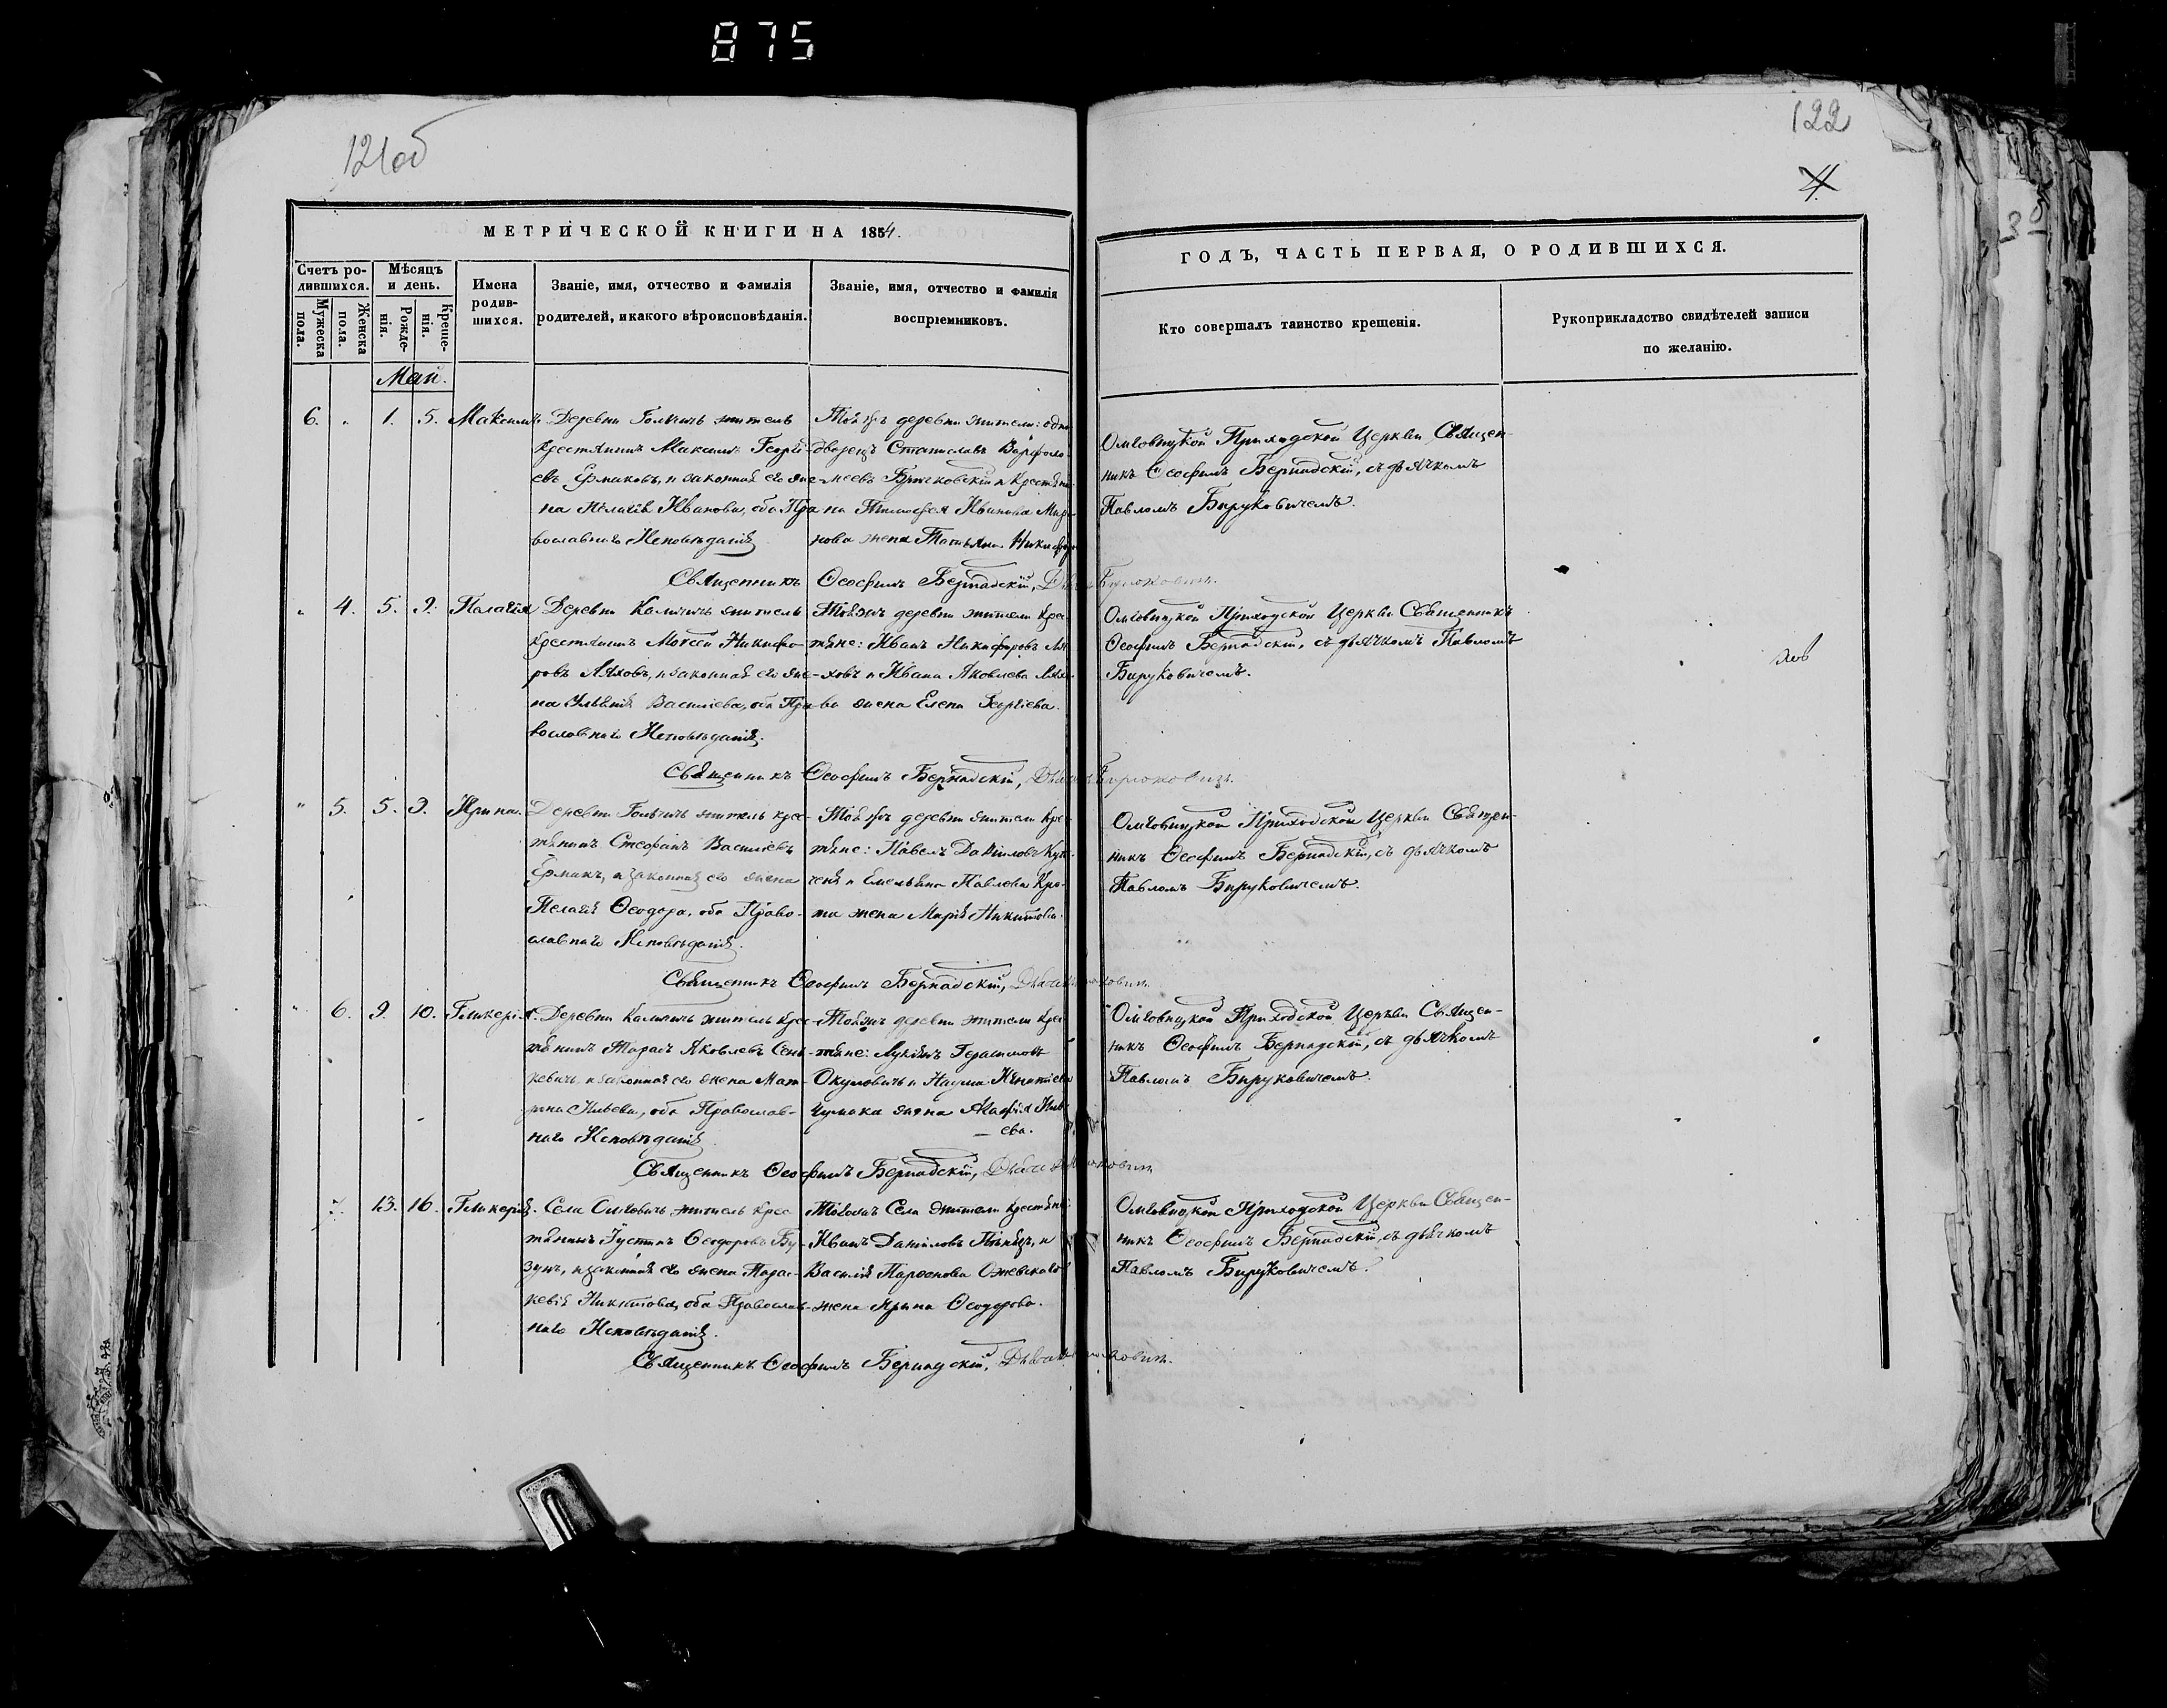 875
121об
122
4
МЕТРИЧЕСКОЙ КНИГИ НА 1854.
ГОДЪ, ЧАСТЬ ПЕРВАЯ, О РОДИВШИХСЯ.
Счетъ ро-
дившихся.
Мужеска
пола.
Женска
пола.
Мѣсяцъ
и день.
Рожде-
нія.
Креще-
нія.
Имена
родив-
шихся.
Званіе, имя, отчество и фамилія
родителей, и какого вѣроисповѣданія.
Званіе, имя, отчество и фамилія
воспріемниковъ.
Кто совершалъ таинство крещенія.
Рукоприкладство свидѣтелей записи
по желанію.
Май.
6. „ 1. 5. Максимъ.
Деревни житель
крестянинъ Максимъ Георгі-
евъ Ермаковъ, и законная его же-
на Пелагія Иванова, оба Пра
вославнаго Исповѣданія
Той жъ деревни жители: одно
дворецъ Станиславъ Варфоло-
меевъ и крестяни-
на Тимофея Иванова
нова жена Татьяна Никифор
Омговицкой Приходской Церкви Священ-
никъ Ѳеофилъ Бернадскій, съ дьячкомъ
Павломъ Бируковичемъ.
Священникъ Ѳеофилъ Бернадскій,
„ 4. 5. 9. Палагія
Деревни Калчичь житель
крестянинъ Моѵсей Никифо-
ровъ Ляховъ, и законная его же-
на Уліянія Васильева, оба Пра-
вославнаго Исповѣданія.
Той жъ деревни жители крес
тяне: Иванъ Никифоровъ Ля
ховъ и Ивана Яковлева Ляхо-
ва жена Елена Георгіева.
Омговицкой Приходской Церкви Священникъ
Ѳеофилъ Бернадскій, съ дьячкомъ Павломъ
Бируковичемъ.
Священникъ Ѳеофилъ Бернадскій, Бирюковичъ.
„ 5. 5. 9. Ирина.
Деревни житель крес-
тянинъ Стефанъ Василіевъ
Ермакъ, и законная его жена
Пелагія Ѳеодора, оба Право-
славнаго Исповѣданія.
Той жъ деревни жители крес
тяне: Павелъ Даніиловъ
и Емельяна Павлова Кро-
та жена Марія Никитова.
Омговицкой Приходской Церкви Священ-
никъ Ѳеофилъ Бернадскій, съ дьячкомъ
Павломъ Бируковичемъ.
Священникъ Ѳеофилъ Бернадскій,
„ 6. 9. 10. Гликерія.
Деревни Калчичь житель крес-
тянинъ Тарасъ Яковлевъ Сень-
кевичь, и законная его жена Мат-
рона Ильева, оба Православ-
наго Исповѣданія
Той жъ деревни жители крес
тяне: Лукіянъ Герасимовъ
Окуловичь и Наума Игнатіева
Чумака жена Агафія Иль-
ева.
Омговицкой Приходской Церкви Священ-
никъ Ѳеофилъ Бернадскій, съ дьячкомъ
Павломъ Бируковичемъ.
Священникъ Ѳеофилъ Бернадскій,
7. 13. 16. Гликерія.
Села Омговичь житель крес
тянинъ Іустинъ Ѳеодоровъ Бу-
зунъ, и законная его жена Парас-
кевія Никитова, оба Православ-
наго Исповѣданія.
Тогожъ Села жители крестяне:
Иванъ Даніиловъ и
Василія Парѳенова Ожевскаго
жена Ирина Ѳеодорова.
Омговицкой Приходской Церкви Священ-
никъ Ѳеофилъ Бернадскій, съ дьячкомъ
Павломъ Бируковичемъ.
Священникъ Ѳеофилъ Бернадскій,